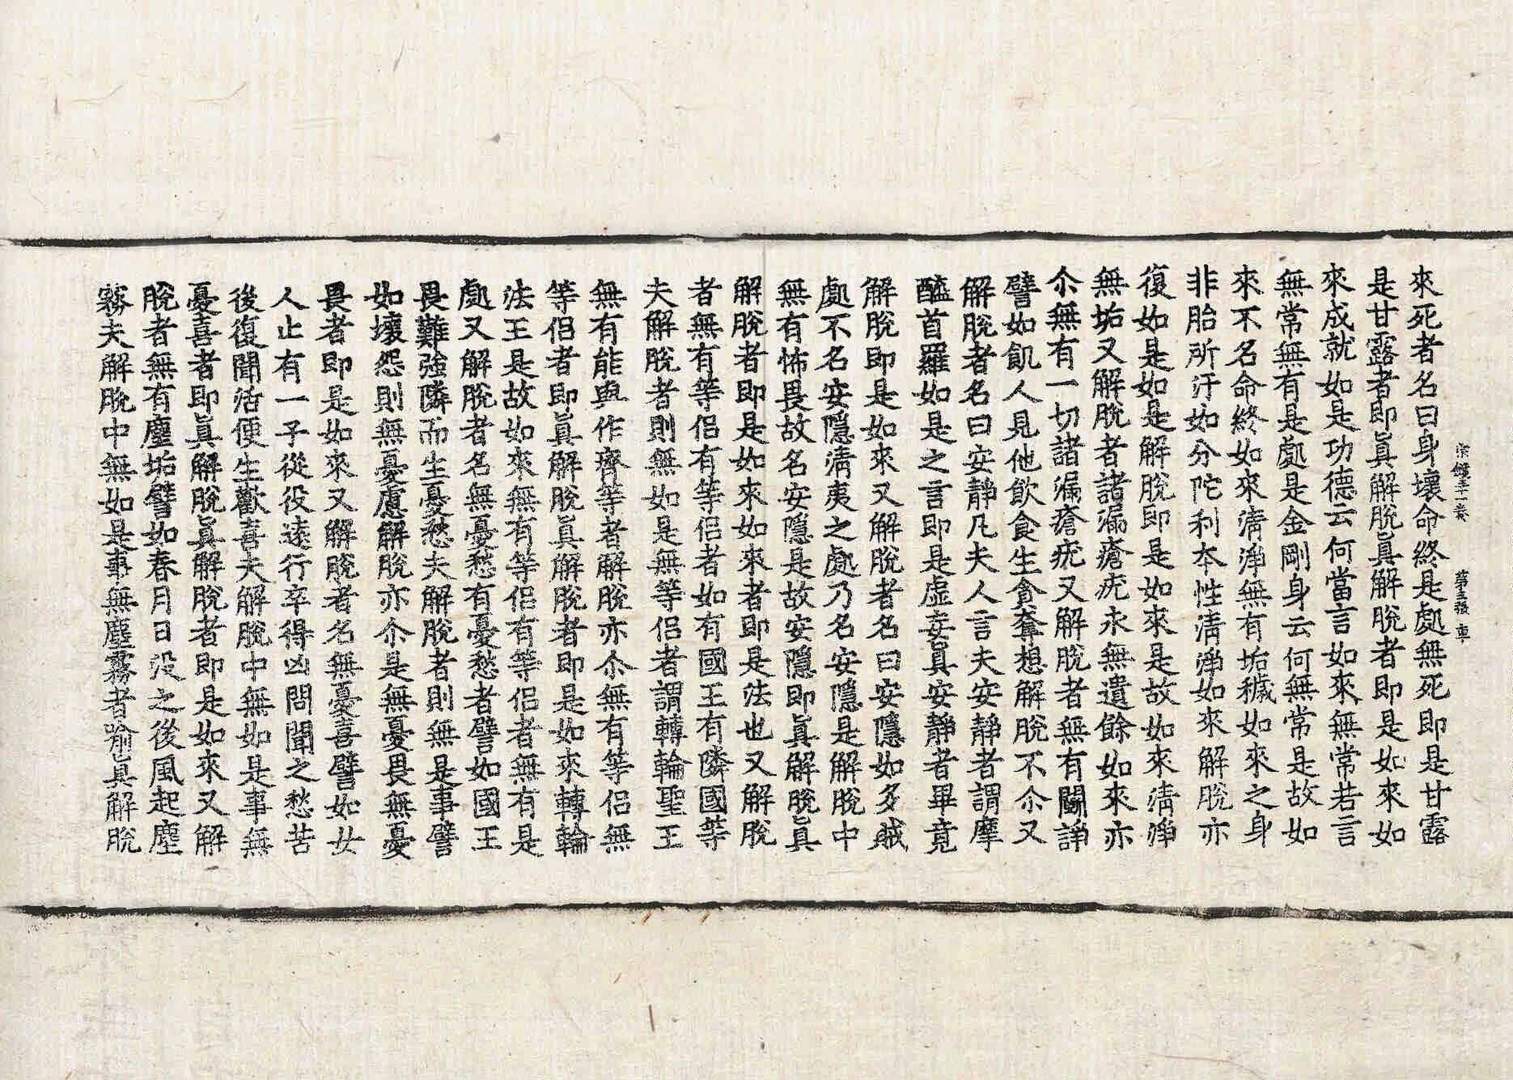 宗鏡三十一卷 第五張 車
來死者名曰身壞命終是處無死即是甘露
是甘露者即眞解脫眞解脫者即是如來如
來成就如是功德云何當言如來無常若言
無常無有是處是金剛身云何無常是故如
來不名命終如來清淨無有垢穢如來之身
非胎所汙如分陀利本性清淨如來解脫亦
復如是如是解脫即是如來是故如來清淨
無垢又解脫者諸漏瘡疣永無遺餘如來亦
尒無有一切諸漏瘡疣又解脫者無有鬪諍
譬如飢人見他飲食生貪奪想解脫不尒又
解脫者名曰安靜凡夫人言夫安靜者謂摩
醯首羅如是之言即是虛妄眞安靜者畢竟
解脫即是如來又解脫者名曰安隱如多賊
處不名安隱清夷之處乃名安隱是解脫中
無有怖畏故名安隱是故安隱即眞解脫眞
解脫者即是如來如來者即是法也又解脫
者無有等侶有等侶者如有國王有隣國等
夫解脫者則無如是無等侶者謂轉輪聖王
無有能與作齊等者解脫亦尒無有等侶無
等侶者即眞解脫眞解脫者即是如來轉輪
法王是故如來無有等侶有等侶者無有是
處又解脫者名無憂愁有憂愁者譬如國王
畏難強隣而生憂愁夫解脫者則無是事譬
如壞怨則無憂慮解脫亦尒是無憂畏無憂
畏者即是如來又解脫者名無憂喜譬如女
人止有一子從役遠行卒得凶問聞之愁苦
後復聞活便生歡喜夫解脫中無如是事無
憂喜者即眞解脫眞解脫者即是如來又解
脫者無有塵垢譬如春月日沒之後風起塵
霧夫解脫中無如是事無塵霧者喻眞解脫